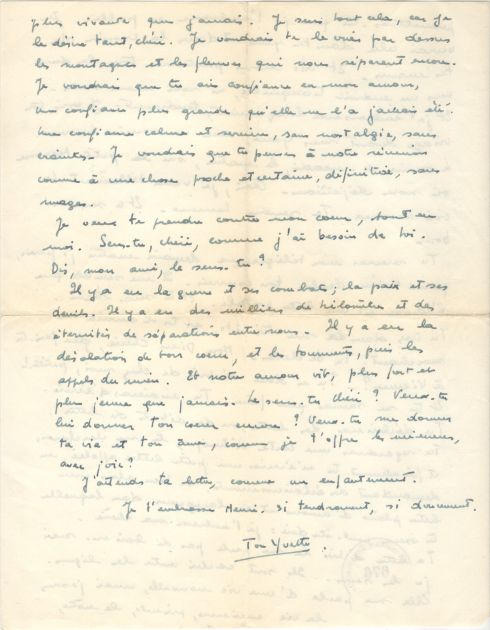 plus vivante que jamais. Je sens tout cela, car je
le désire tant, chéri. Je voudrais te le crier par dessus
les montagnes et les fleuves qui nous séparent encore.
Je voudrais que tu aies confiance en mon amour,
une confiance plus grande qu'elle ne l'a jamais été.
Une confiance calme et sereine, sans nostalgie, sans
craintes. Je voudrais que tu penses à notre réunion
comme à une chose proche et certaine, définitive, sans
nuages.
Je veux te prendre contre mon cœur, tout en
moi. Sens-tu, chéri, comme j'ai besoin de toi.
Dis, mon ami, le sens-tu ?
Il y a eu la guerre et ses combats; la paix et ses
deuils. Il y a eu des milliers de kilomètres et des
éternités de séparations entre nous. Il y a eu la
désolation de ton cœur, et les tourments, puis les
appels du mien. Et notre amour vit, plus fort et
plus jeune que jamais. Le sens-tu chéri ? Veux-tu
lui donner ton cœur encore ? Veux-tu me donner
ta vie et ton âme, comme je t'offre les miennes,
avec joie ?
J'attends ta lettre, comme un enfantement.
Je t'embrasse Henri. si tendrement, si doucement.
Ton Yvette.